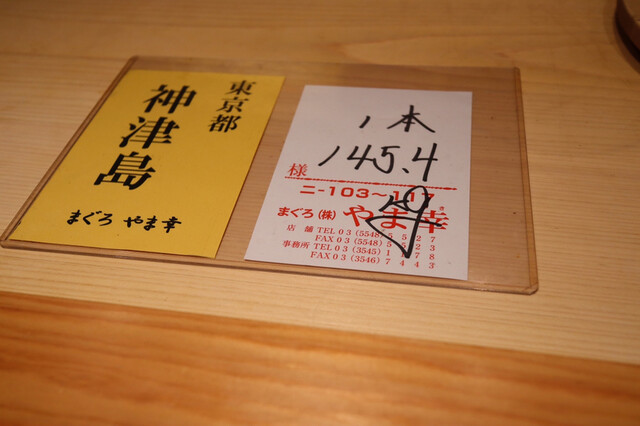 東京都
神津島
まぐろ やま幸
1本
145.4
様
ニ-103〜117
まぐろ(株)やま幸
店舗 TEL03(5548)5527
FAX03(5548)5523
事務所 TEL03(3545)1178
FAX03(3546)7443